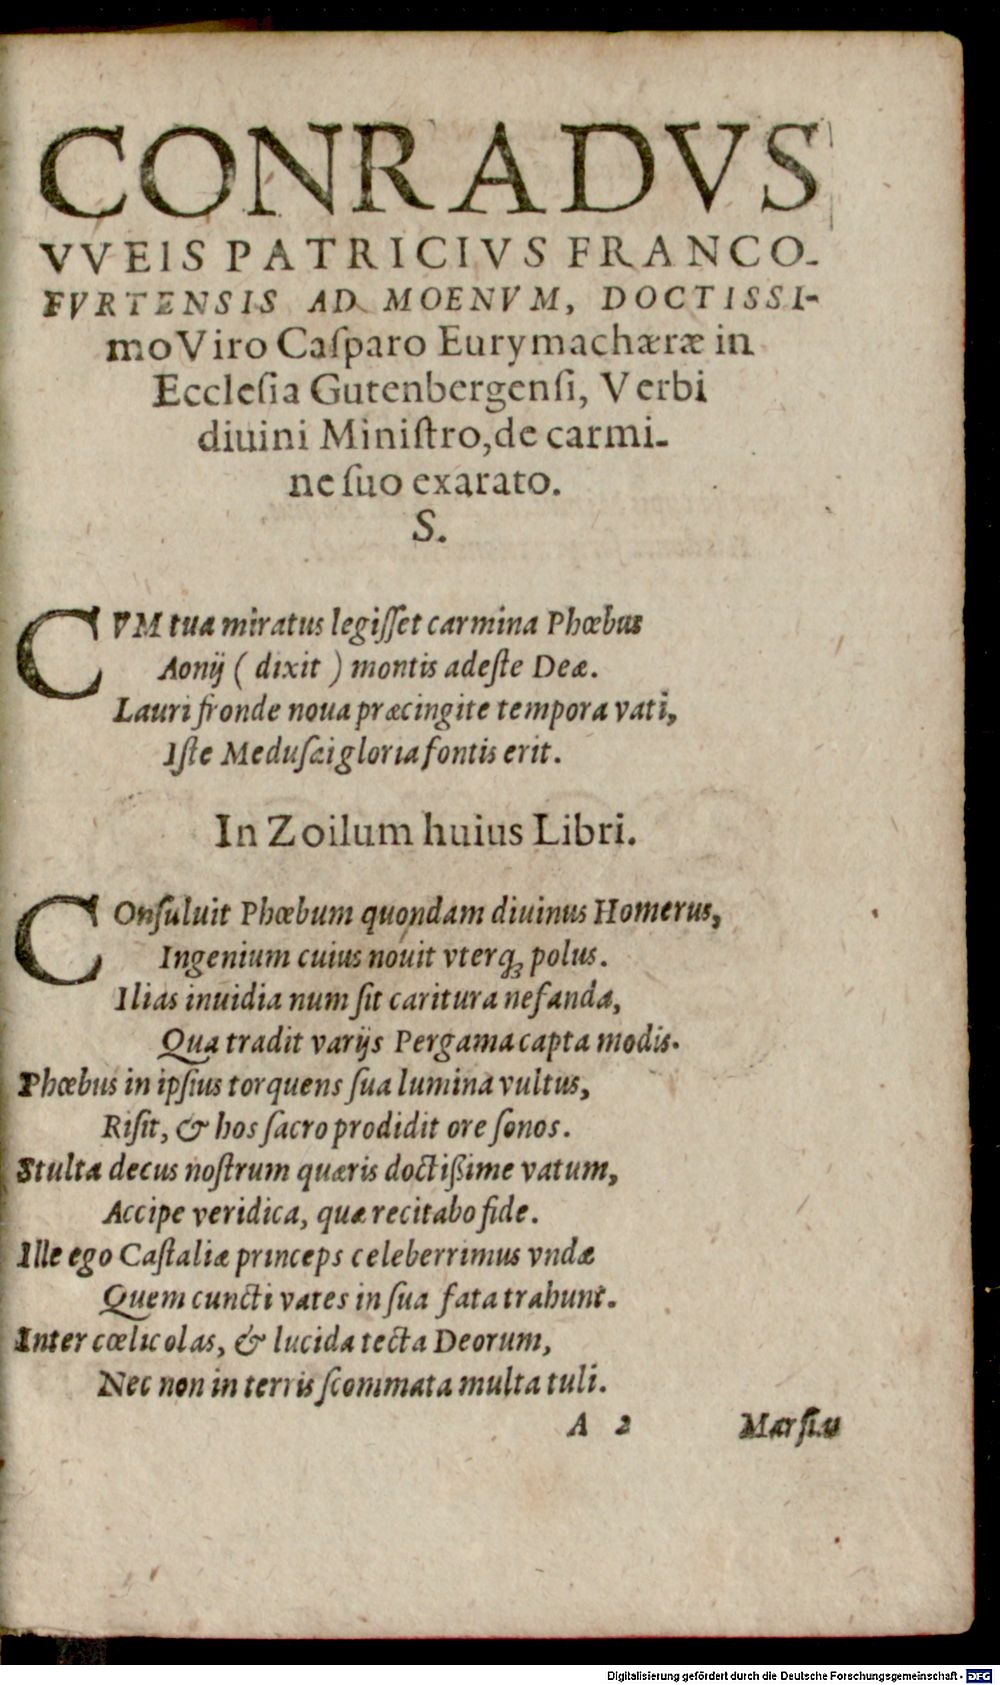 CONRADVS
VVEIS PATRICIVS FRANCO-
FVRTENSIS AD MOENVM, DOCTISSI-
mo Viro Caſparo Eurymachæræ in
Eccleſia Gutenbergenſi, Verbi
diuini Miniſtro, de carmi-
ne ſuo exarato.
S.
CVM tua miratus legiſſet carmina Phœbus
Aonij ( dixit ) montis adeſte Deæ.
Lauri fronde noua præcingite tempora vati,
Iſte Meduſæi gloria fontis erit.
In Zoilum huius Libri.
COnſuluit Phœbum quondam diuinus Homerus,
Ingenium cuius nouit vterq; polus.
Ilias inuidia num ſit caritura nefanda,
Qua tradit varijs Pergama capta modis.
Phœbus in ipſius torquens ſua lumina vultus,
Riſit, & hos ſacro prodidit ore ſonos.
Stulta decus noſtrum quæris doctißime vatum,
Accipe veridica, quæ recitabo fide.
Ille ego Caſtaliæ princeps celeberrimus vndæ
Quem cuncti vates in ſua fata trahunt.
Inter cœlicolas, & lucida tecta Deorum,
Nec non in terris ſcommata multa tuli.
A 2 Marſiu
Digitalisierung gefördert durch die Deutsche Forschungsgemeinschaft - DFG